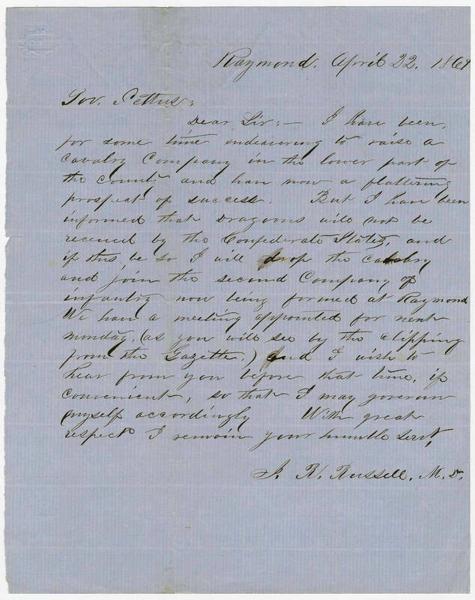 Raymond. April 22. 1861
Gov. Pettus;
Dear Sir:— I have been
for some time endeavoring to raise a
Cavalry Company in the lower part of
the county and have now a flattering
prospect of success. But I have been
informed that Dragoons will not be
received by the Confederate States, and
if this be so I will drop the cavalry
and join the second Company of
infantry now being formed at Raymond
We have a meeting appointed for next
Monday, (as you will see by the clipping
from the Gazette.) And I wish to
hear from you before that time, if
convenient, so that I may govern
myself accordingly With great
respect I remain your humble Servt,
R. Russell, M. D.